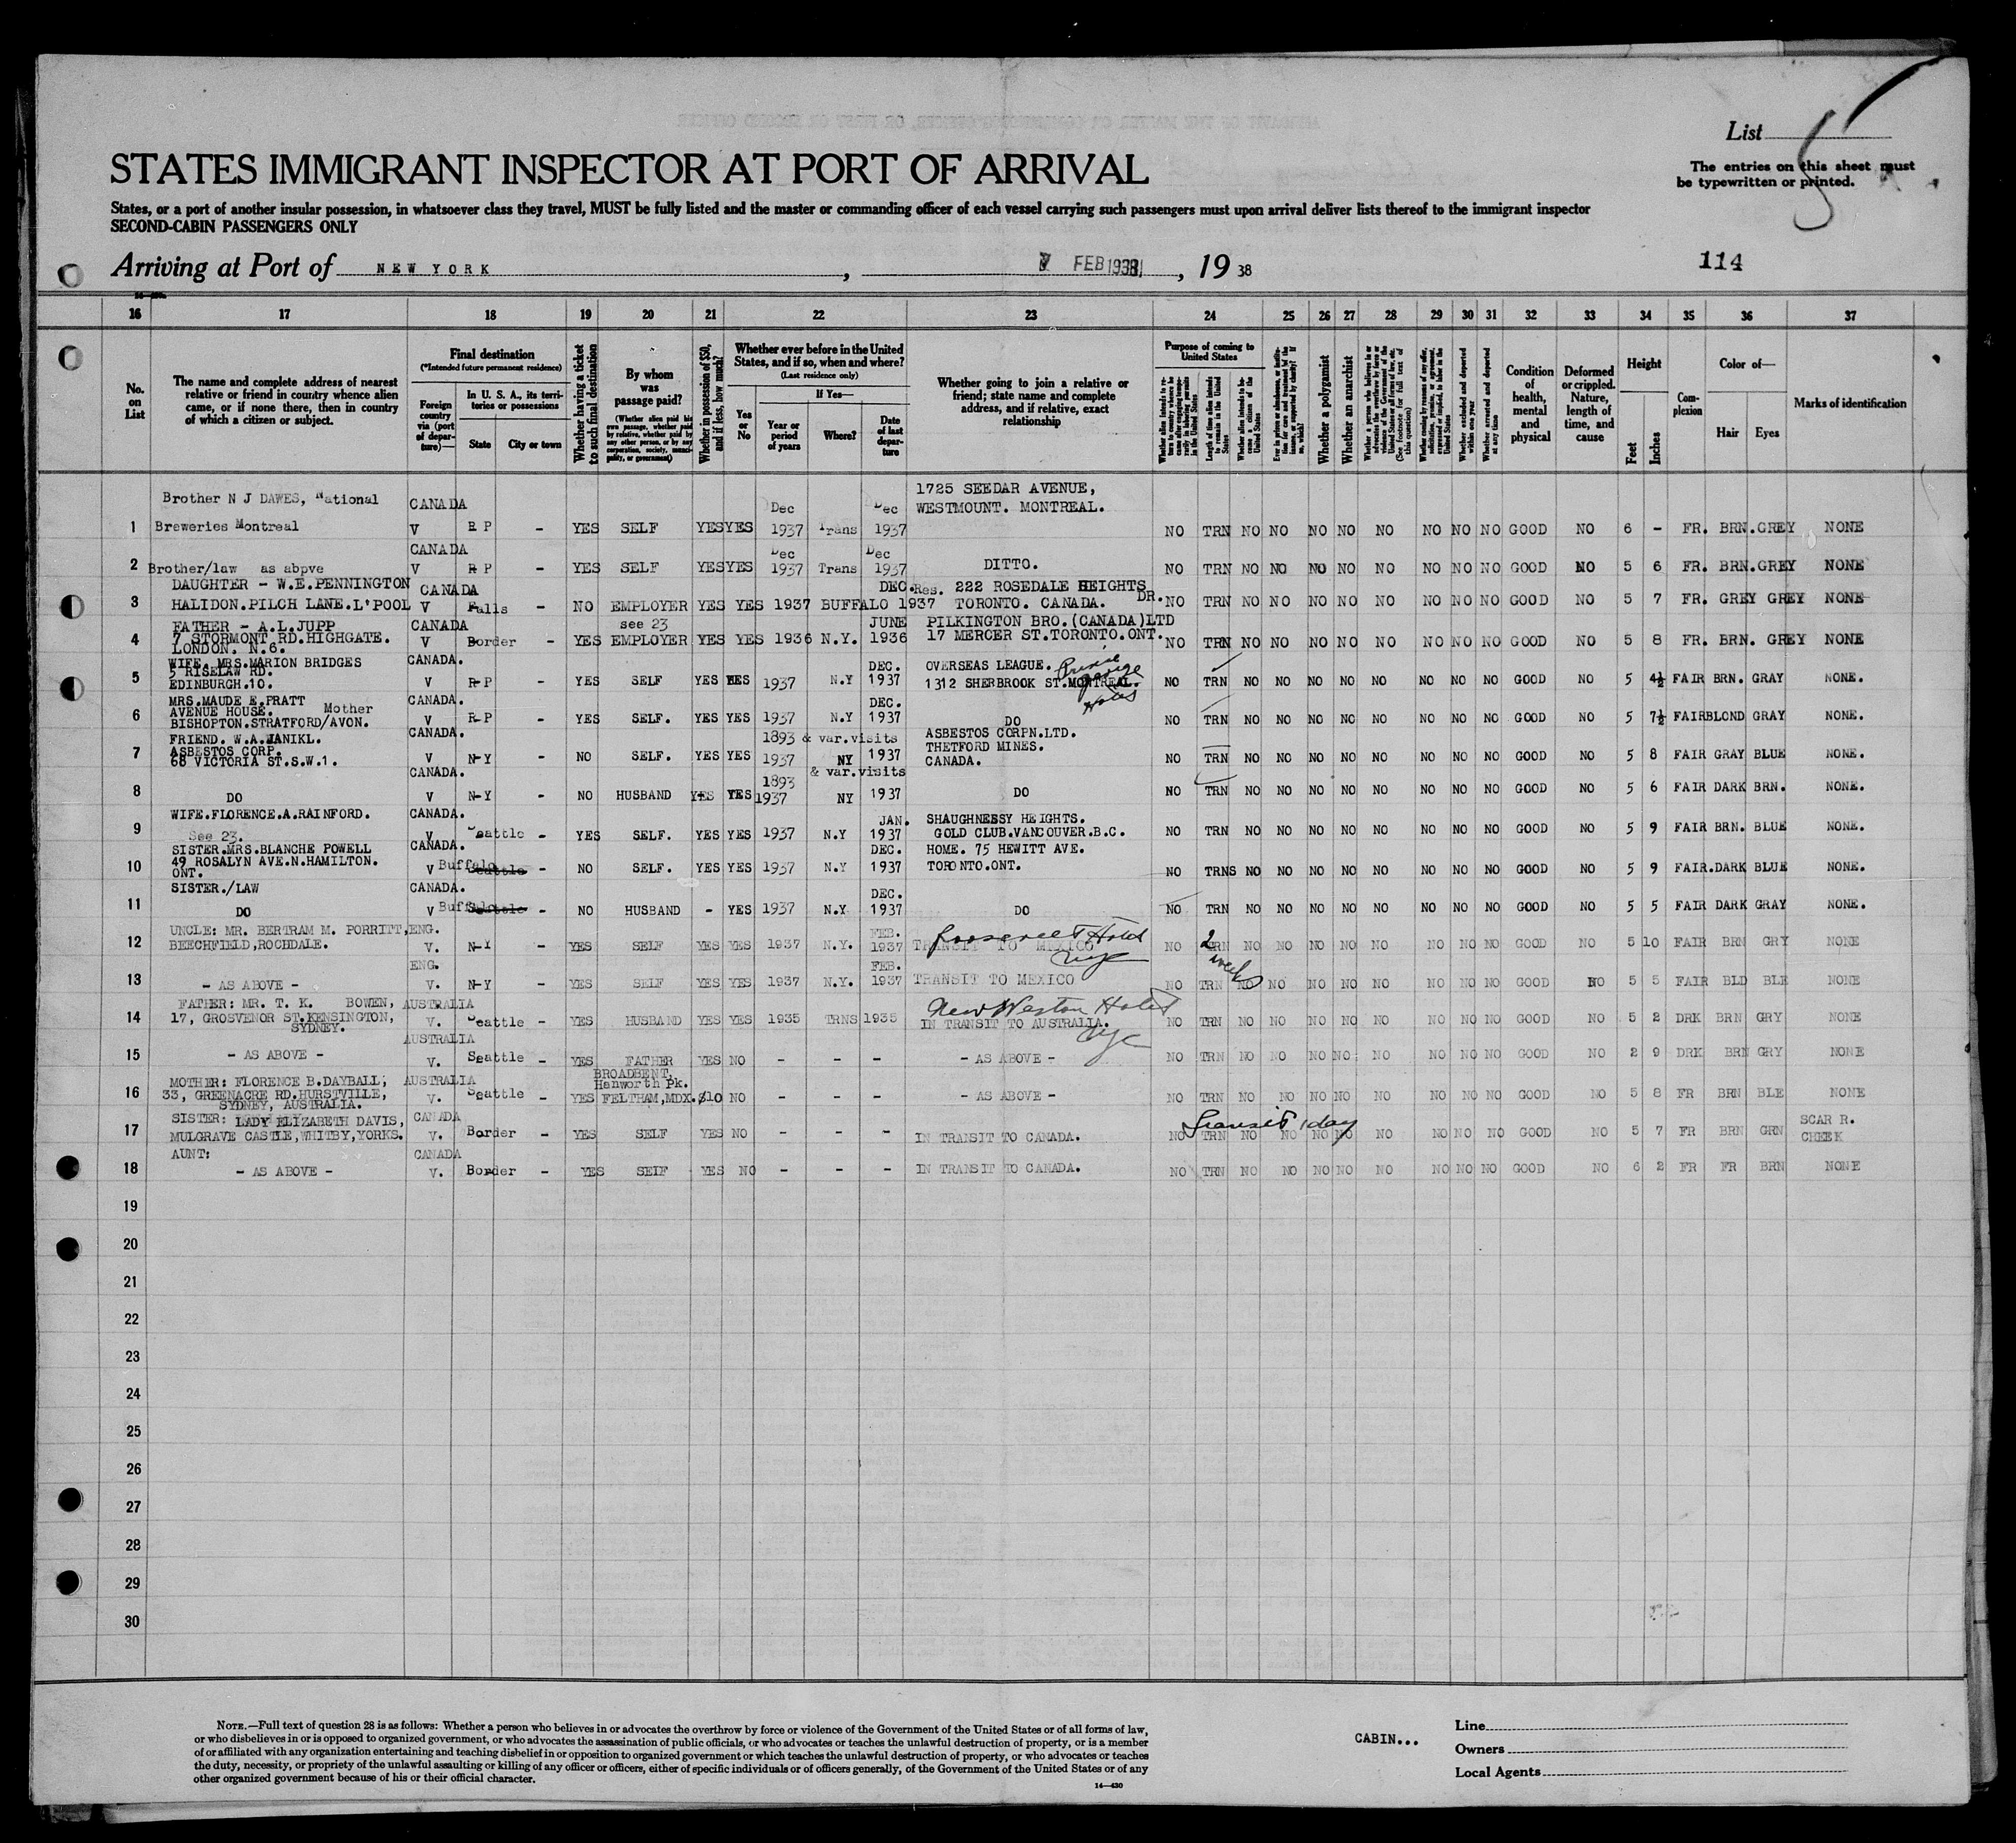 List 5
The entries on this sheet must
be typewritten or printed.
STATES IMMIGRANT INSPECTOR AT PORT OF ARRIVAL
States, or a port of another insular possession, in whatsoever class they travel, MUST be fully listed and the master or commanding officer of each vessel carrying such passengers must upon arrival deliver lists thereof to the immigrant inspector
SECOND-CABIN PASSENGERS ONLY
Arriving at Port of NEW YORK, 7 FEB 1938, 19 38
114
16 17 18 19 20 21 22 23 24 25 26 27 28 29 30 31 32 33 34 35 36 37
No. on List
The name and complete address of nearest relative or friend in country whence alien came, or if none there, then in country of which a citizen or subject.
Final destination
(*Intended future permanent residence)
Foreign country via (port of departure)—
In U. S. A., its territories or possessions
State
City or town
Whether having a ticket to such final destination
By whom was passage paid?
(Whether alien paid his own passage, whether paid by relative, whether paid by any other person, or by any corporation, society, municipality, or government)
Whether in possession of $50, and if less, how much?
Whether ever before in the United States, and if so, when and where?
(Last residence only)
Yes or No
If Yes—
Year or period of years
Where?
Date of last departure
Whether going to join a relative or friend; state name and complete address, and if relative, exact relationship
Purpose of coming to United States
Length of time alien intends to remain in the United States
Whether alien intends to become a citizen of the United States
Whether a polygamist
Whether an anarchist
Whether excluded and deported within one year
Whether arrested and deported at any time
Condition of health, mental and physical
Deformed or crippled. Nature, length of time, and cause
Height
Feet
Inches
Complexion
Color of—
Hair
Eyes
Marks of identification
Brother N J DAWES, National CANADA Dec Dec 1725 SEEDAR AVENUE, WESTMOUNT. MONTREAL.
1 Breweries Montreal V R P - YES SELF YES YES 1937 Trans 1937 NO TRN NO NO NO NO NO NO NO NO GOOD NO 6 - FR. BRN. GREY NONE
CANADA Dec Dec
2 Brother/law as abpve V R P - YES SELF YES YES 1937 Trans 1937 DITTO. NO TRN NO NO NO NO NO NO NO NO GOOD NO 5 6 FR. BRN. GREY NONE
DAUGHTER - W.E.PENNINGTON CANADA DEC. Res. 222 ROSEDALE HEIGHTS DR.
3 HALIDON.PILCH LANE.L'POOL V Falls - NO EMPLOYER YES YES 1937 BUFFALO 1937 TORONTO. CANADA. NO TRN NO NO NO NO NO NO NO NO GOOD NO 5 7 FR. GREY GREY NONE
FATHER - A.L.JUPP CANADA see 23 JUNE PILKINGTON BRO.(CANADA)LTD
4 7 STORMONT RD.HIGHGATE. V Border - YES EMPLOYER YES YES 1936 N.Y. 1936 17 MERCER ST.TORONTO.ONT. NO TRN NO NO NO NO NO NO NO NO GOOD NO 5 8 FR. BRN. GREY NONE
LONDON. N.6.
WIFE. MRS.MARION BRIDGES CANADA. DEC. OVERSEAS LEAGUE.
5 5 RISELAW RD. V R-P - YES SELF YES YES 1937 N.Y 1937 1312 SHERBROOK ST.MONTREAL. NO TRN NO NO NO NO NO NO NO NO GOOD NO 5 4½ FAIR BRN. GRAY NONE.
EDINBURGH.10.
George Hotel
MRS.MAUDE E.PRATT CANADA. DEC.
6 AVENUE HOUSE. Mother V R-P - YES SELF. YES YES 1937 N.Y 1937 DO NO TRN NO NO NO NO NO NO NO NO GOOD NO 5 7½ FAIR BLOND GRAY NONE.
BISHOPTON.STRATFORD/AVON.
FRIEND. W.A.JANIKL. CANADA. 1893 & var.visits ASBESTOS CORPN.LTD.
7 ASBESTOS CORP. V N-Y - NO SELF. YES YES 1937 NY 1937 THETFORD MINES. CANADA. NO TRN NO NO NO NO NO NO NO NO GOOD NO 5 8 FAIR GRAY BLUE NONE.
68 VICTORIA ST.S.W.1.
CANADA. 1893 & var.visits
8 DO V N-Y - NO HUSBAND YES YES 1937 NY 1937 DO NO TRN NO NO NO NO NO NO NO NO GOOD NO 5 6 FAIR DARK BRN. NONE.
WIFE.FLORENCE.A.RAINFORD. CANADA. JAN. SHAUGHNESSY HEIGHTS.
9 See 23. V Seattle - YES SELF. YES YES 1937 N.Y 1937 GOLD CLUB.VANCOUVER.B.C. NO TRN NO NO NO NO NO NO NO NO GOOD NO 5 9 FAIR BRN. BLUE NONE.
SISTER.MRS.BLANCHE POWELL CANADA. DEC. HOME. 75 HEWITT AVE.
10 49 ROSALYN AVE.N.HAMILTON. V Buffalo Seattle - NO SELF. YES YES 1937 N.Y 1937 TORONTO.ONT. NO TRNS NO NO NO NO NO NO NO NO GOOD NO 5 9 FAIR. DARK BLUE NONE.
ONT.
SISTER./LAW CANADA. DEC.
11 DO V Buffalo Seattle - NO HUSBAND - YES 1937 N.Y 1937 DO NO TRN NO NO NO NO NO NO NO NO GOOD NO 5 5 FAIR DARK GRAY NONE.
UNCLE: MR. BERTRAM M. PORRITT, ENG. FEB. Roosevelt Hotel NYC
12 BEECHFIELD,ROCHDALE. V. N-Y - YES SELF YES YES 1937 N.Y. 1937 TRANSIT TO MEXICO NO TRN 2 weeks NO NO NO NO NO NO NO NO GOOD NO 5 10 FAIR BRN GRY NONE
ENG. FEB.
13 - AS ABOVE - V. N-Y - YES SELF YES YES 1937 N.Y. 1937 TRANSIT TO MEXICO NO TRN NO NO NO NO NO NO NO NO GOOD NO 5 5 FAIR BLD BLE NONE
FATHER: MR. T. K. BOWEN, AUSTRALIA New Weston Hotel NYC
14 17, GROSVENOR ST.KENSINGTON, V. Seattle - YES HUSBAND YES YES 1935 TRNS 1935 IN TRANSIT TO AUSTRALIA. NO TRN NO NO NO NO NO NO NO NO GOOD NO 5 2 DRK BRN GRY NONE
SYDNEY.
AUSTRALIA
15 - AS ABOVE - V. Seattle - YES FATHER YES NO - - - - AS ABOVE - NO TRN NO NO NO NO NO NO NO NO GOOD NO 2 9 DRK BRN GRY NONE
MOTHER: FLORENCE B.DAYBALL, AUSTRALIA BROADBENT, Hanworth Pk.
16 33, GREENACRE RD.HURSTVILLE, V. Seattle - YES FELTHAM,MDX. $10 NO - - - - AS ABOVE - NO TRN NO NO NO NO NO NO NO NO GOOD NO 5 8 FR BRN BLE NONE
SYDNEY, AUSTRALIA.
SISTER: LADY ELIZABETH DAVIS, CANADA Transit 1 day SCAR R.
17 MULGRAVE CASTLE,WHITBY,YORKS. V. Border - YES SELF YES NO - - - IN TRANSIT TO CANADA. NO TRN NO NO NO NO NO NO NO NO GOOD NO 5 7 FR BRN GRN CHEEK
AUNT: CANADA
18 - AS ABOVE - V. Border - YES SELF YES NO - - - IN TRANSIT TO CANADA. NO TRN NO NO NO NO NO NO NO NO GOOD NO 6 2 FR FR BRN NONE
19
20
21
22
23
24
25
26
27
28
29
30
NOTE.—Full text of question 28 is as follows: Whether a person who believes in or advocates the overthrow by force or violence of the Government of the United States or of all forms of law,
or who disbelieves in or is opposed to organized government, or who advocates the assassination of public officials, or who advocates or teaches the unlawful destruction of property, or is a member
of or affiliated with any organization entertaining and teaching disbelief in or opposition to organized government or which teaches the unlawful destruction of property, or who advocates or teaches
the duty, necessity, or propriety of the unlawful assaulting or killing of any officer or officers, either of specific individuals or of officers generally, of the Government of the United States or of any
other organized government because of his or their official character.
14—430
CABIN...
Line
Owners
Local Agents